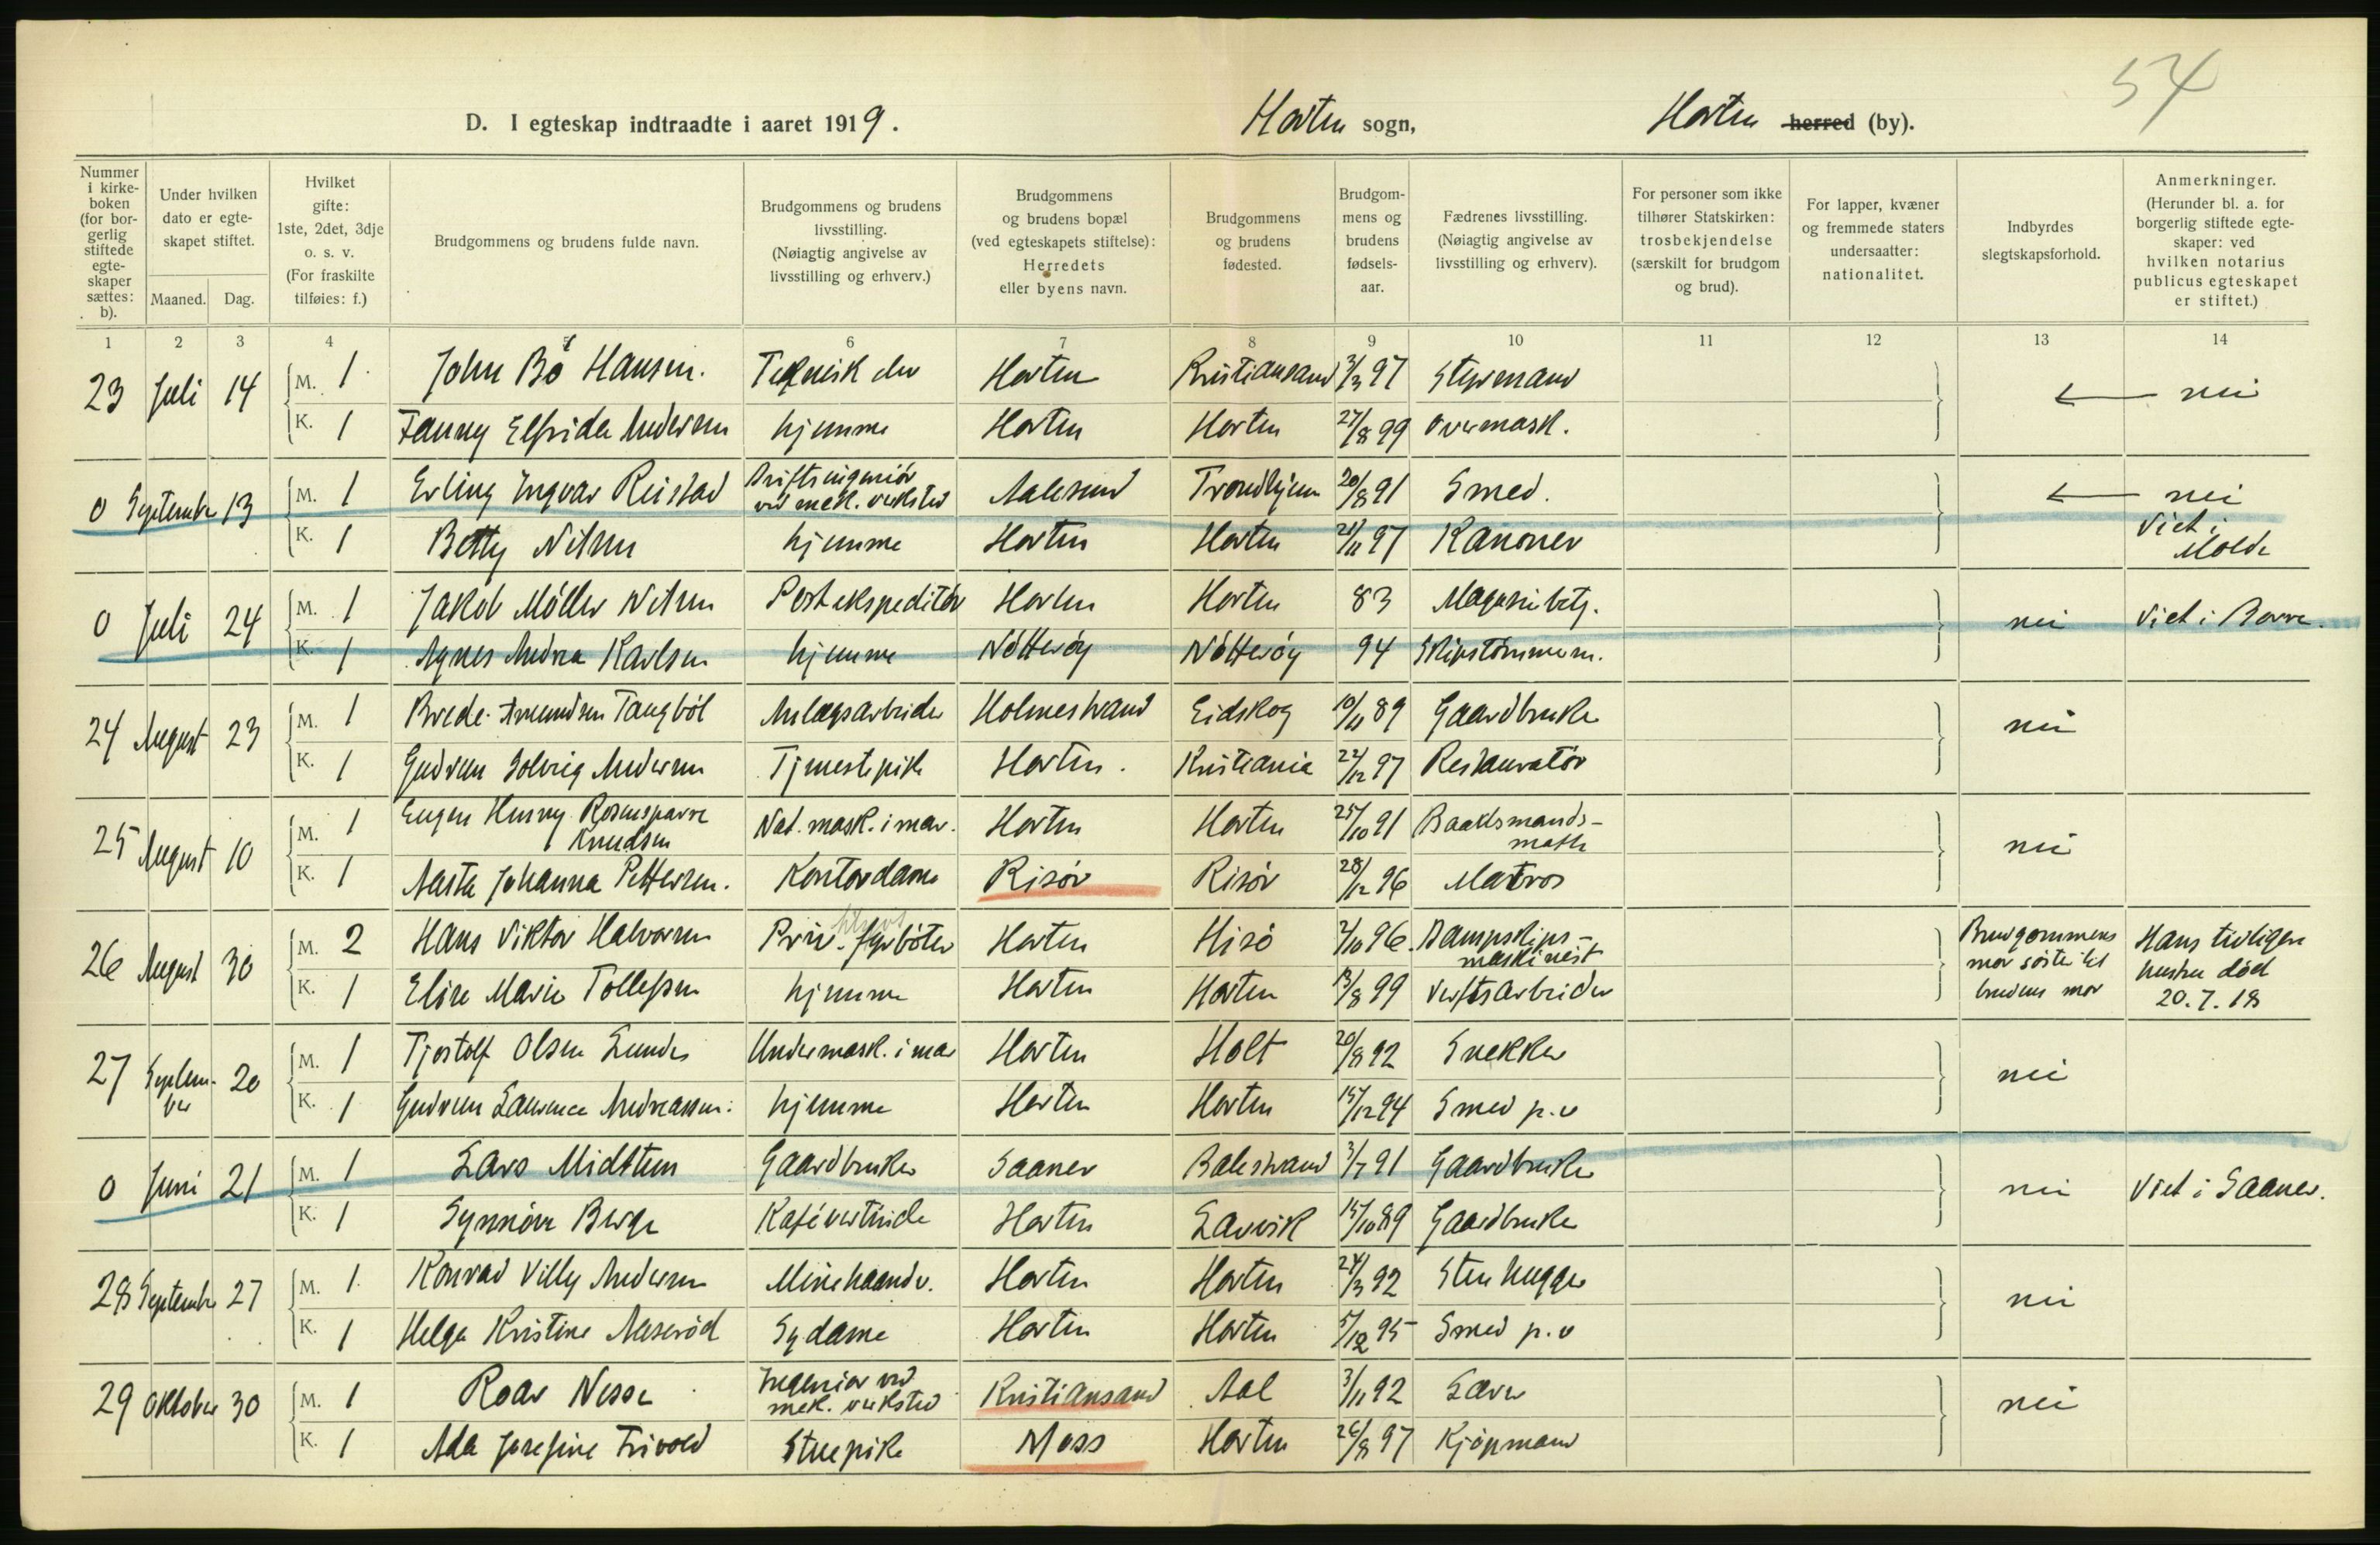 54
D. I egteskap indtraadte i aaret 1919. Horten sogn, Horten herred (by).
Nummer i kirkeboken (for borgerlig stiftede egteskaper sættes: b).
Under hvilken dato er egteskapet stiftet.
Maaned. Dag.
Hvilket gifte: 1ste, 2det, 3dje o. s. v. (For fraskilte tilføies: f.)
Brudgommens og brudens fulde navn.
Brudgommens og brudens livsstilling. (Nøiagtig angivelse av livsstilling og erhverv.)
Brudgommens og brudens bopæl (ved egteskapets stiftelse): Herredets eller byens navn.
Brudgommens og brudens fødested.
Brudgommens og brudens fødselsaar.
Fædrenes livsstilling. (Nøiagtig angivelse av livsstilling og erhverv).
For personer som ikke tilhører Statskirken: trosbekjendelse (særskilt for brudgom og brud).
For lapper, kvæner og fremmede staters undersaatter: nationalitet.
Indbyrdes slegtskapsforhold.
Anmerkninger. (Herunder bl. a. for borgerlig stiftede egteskaper: ved hvilken notarius publicus egteskapet er stiftet.)
1 2 3 4 5 6 7 8 9 10 11 12 13 14
23 Juli 14 M. 1 John Bö Hansen. Teknisk elev Horten Kristiansand 3/3 97 Styrmand ← nei
K. 1 Fanny Elfrida Andersen hjemme Horten Horten 27/8 99 Overmask.
0 September 13 M. 1 Erling Ingvar Reistad Driftsingeniör ved mek. verksted Aalesund Trondhjem 20/8 91 Smed. ← nei
K. 1 Betty Nilsen hjemme Horten Horten 21/11 97 Kanoner Viet i Molde
0 Juli 24 M. 1 Jakob Möller Nilsen Postekspeditör Horten Horten 83 Magasinbetj. nei Viet i Borre.
K. 1 Agnes Andrea Karlsen hjemme Nötteröy Nötteröy 94 Skipstömmerm.
24 August 23 M. 1 Brede Amundsen Tangböl Anlægsarbeider Holmestrand Eidskog 10/11 89 Gaardbruker nei
K. 1 Gudrun Solveig Andersen Tjenestepike Horten. Kristiania 22/12 97 Restauratör
25 August 10 M. 1 Eugen Henry Rosensparre Knudsen Nat. mask. i mar. Horten Horten 25/10 91 Baadsmandsmath nei
K. 1 Aasta Johanna Pettersen. Kontordame Risör Risör 28/12 96 Matros
26 August 30 M. 2 Hans Viktor Halvorsen Priv. fyrböter Horten Hisö 2/10 96 Dampskipsmaskinist Brudgommens mor söster til brudens mor Hans tidligere hustru död 20.7.18
K. 1 Elise Marie Tollefsen hjemme Horten Horten 13/8 99 Verftsarbeider
27 September 20 M. 1 Tjostolf Olsen Lunde Undermask. i mar Horten Holt 20/8 92 Snekker nei
K. 1 Gudrun Laurence Andreassen. hjemme Horten Horten 15/12 94 Smed p.v
0 Juni 21 M. 1 Lars Midttun Gaardbruker Saaner Balestrand 3/7 91 Gaardbruker nei Viet i Saaner.
K. 1 Synnöve Berge Kafévertinde Horten Lavvik 15/10 89 Gaardbruker
28 September 27 M. 1 Konrad Villy Andersen Minehaandv. Horten Horten 24/3 92 Stenhugger nei
K. 1 Helga Kristine Aaseröd Sydame Horten Horten 5/12 95 Smed p.v
29 Oktober 30 M. 1 Roar Nesse Ingeniör ved mek. verksted Kristiansand Aal 3/11 92 Lærer nei
K. 1 Ada Josefine Trivold Stuepike Moss Horten 26/8 97 Kjöpmand